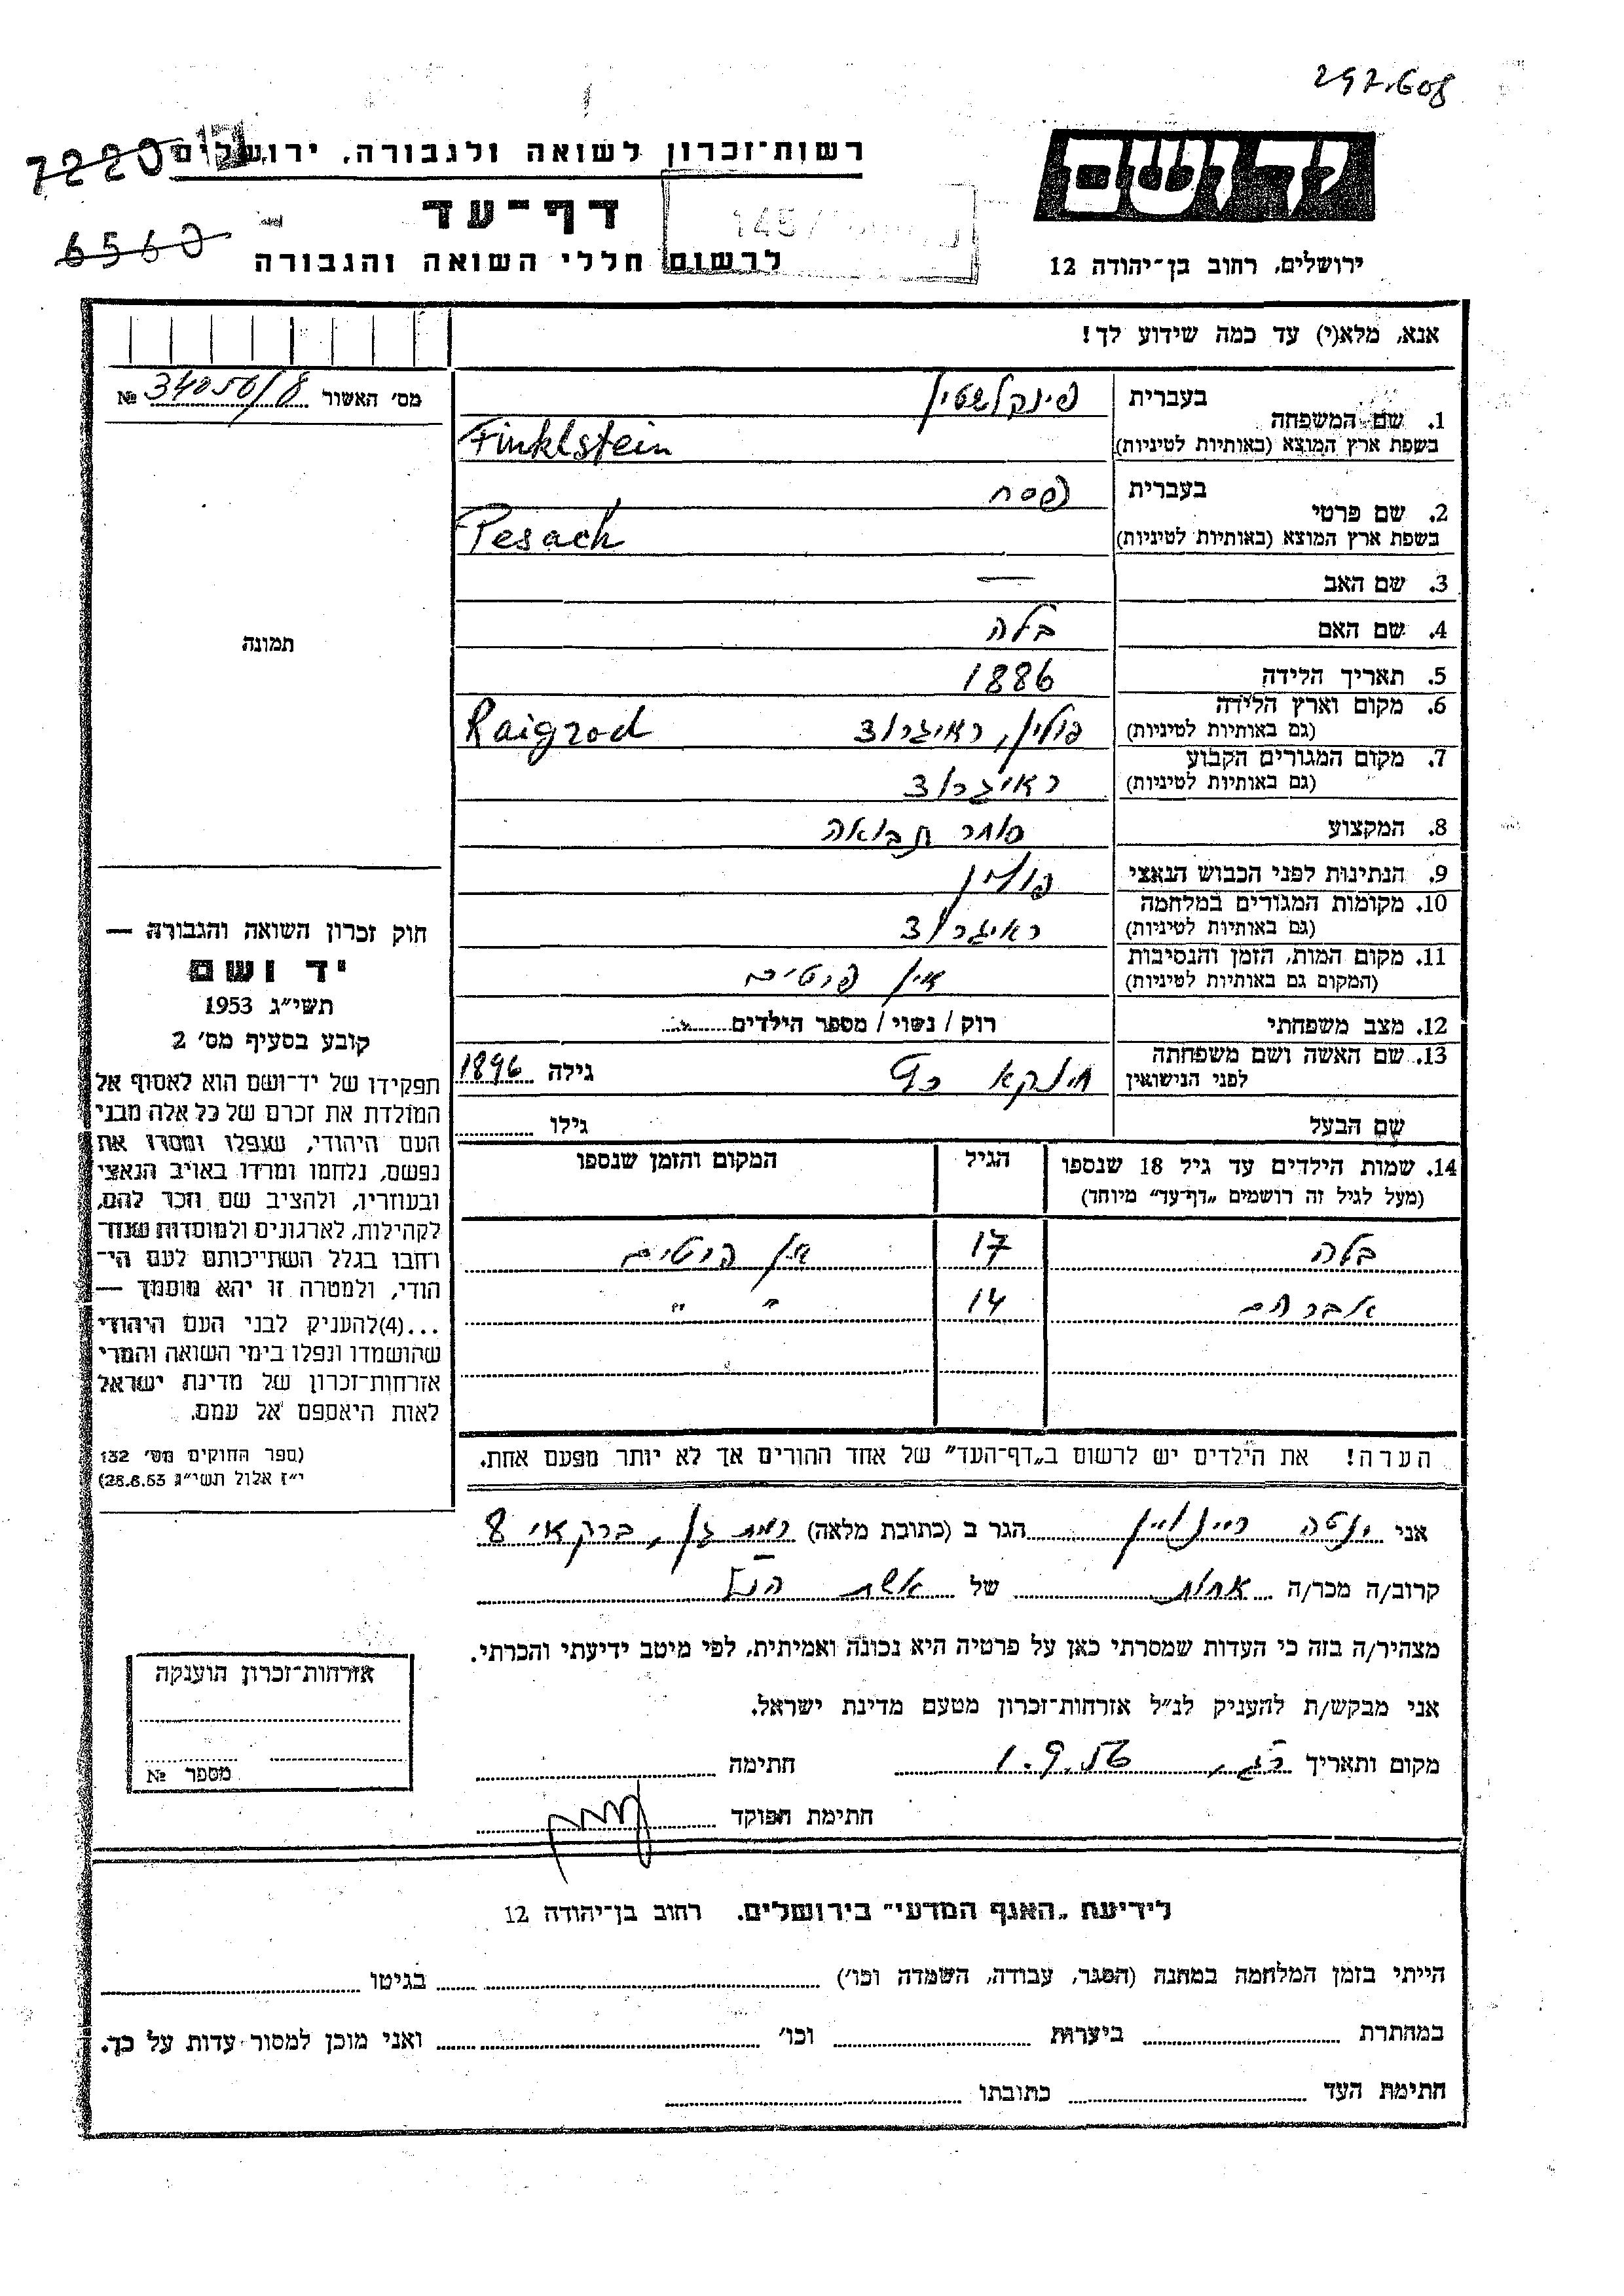 297.608
7220
6560
רשות־זכרון לשואה ולגבורה, ירושלים
יד ושם
דף־עד
לרשום חללי השואה והגבורה
ירושלים, רחוב בן־יהודה 12
145/
אנא, מלא(י) עד כמה שידוע לך!
מס' האשור 34050/8 №
1. שם המשפחה
בעברית פינקלשטין
בשפת ארץ המוצא (באותיות לטיניות) Finklstein
2. שם פרטי
בעברית פסח
בשפת ארץ המוצא (באותיות לטיניות) Pesach
3. שם האב —
4. שם האם בלה
5. תאריך הלידה 1886
6. מקום וארץ הלידה
(גם באותיות לטיניות) פולין, ראיגרוד Raigrod
7. מקום המגורים הקבוע
(גם באותיות לטיניות) ראיגרוד
8. המקצוע סוחר תבואה
9. הנתינות לפני הכבוש הנאצי פולין
10. מקומות המגורים במלחמה
(גם באותיות לטיניות) ראיגרוד
11. מקום המות, הזמן והנסיבות
(המקום גם באותיות לטיניות) אין פרטים
12. מצב משפחתי רוק / נשוי / מספר הילדים
13. שם האשה ושם משפחתה
לפני הנישואין גילה 1896
שם הבעל גילו
14. שמות הילדים עד גיל 18 שנספו הגיל המקום והזמן שנספו
(מעל לגיל זה רושמים „דף־עד" מיוחד)
בלה 17 אין פרטים
אברהם 14 " "
הערה! את הילדים יש לרשום ב„דף־העד" של אחד ההורים אך לא יותר מפעם אחת.
תמונה
חוק זכרון השואה והגבורה —
יד ושם
תשי"ג 1953
קובע בסעיף מס' 2
תפקידו של יד־ושם הוא לאסוף אל
המולדת את זכרם של כל אלה מבני
העם היהודי, שנפלו ומסרו את
נפשם, נלחמו ומרדו באויב הנאצי
ובעוזריו, ולהציב שם וזכר להם,
לקהילות, לארגונים ולמוסדות שנח־
רחבו בגלל השתייכותם לעם הי־
הודי, ולמטרה זו יהא מוסמך —
...(4) להעניק לבני העם היהודי
שהושמדו ונפלו בימי השואה והמרי
אזרחות־זכרון של מדינת ישראל
לאות היאספם אל עמם.
(ספר החוקים מס' 132
י"ז אלול תשי"ג 28.8.53)
אני ינטה הגר ב (כתובת מלאה) רמת גן, ברקאי 8
קרוב/ה מכר/ה אחות של אשת הנ"ל
מצהיר/ה בזה כי העדות שמסרתי כאן על פרטיה היא נכונה ואמיתית, לפי מיטב ידיעתי והכרתי.
אני מבקש/ת להעניק לנ"ל אזרחות־זכרון מטעם מדינת ישראל.
מקום ותאריך ר"ג, 1.9.56 חתימה
חתימת הפוקד
אזרחות־זכרון הוענקה
מספר №
לידיעת „האגף המדעי" בירושלים. רחוב בן־יהודה 12
הייתי בזמן המלחמה במחנה (הסגר, עבודה, השמדה וכו') בגיטו
במחתרת ביערות וכו' ואני מוכן למסור עדות על כך.
חתימת העד כתובתו